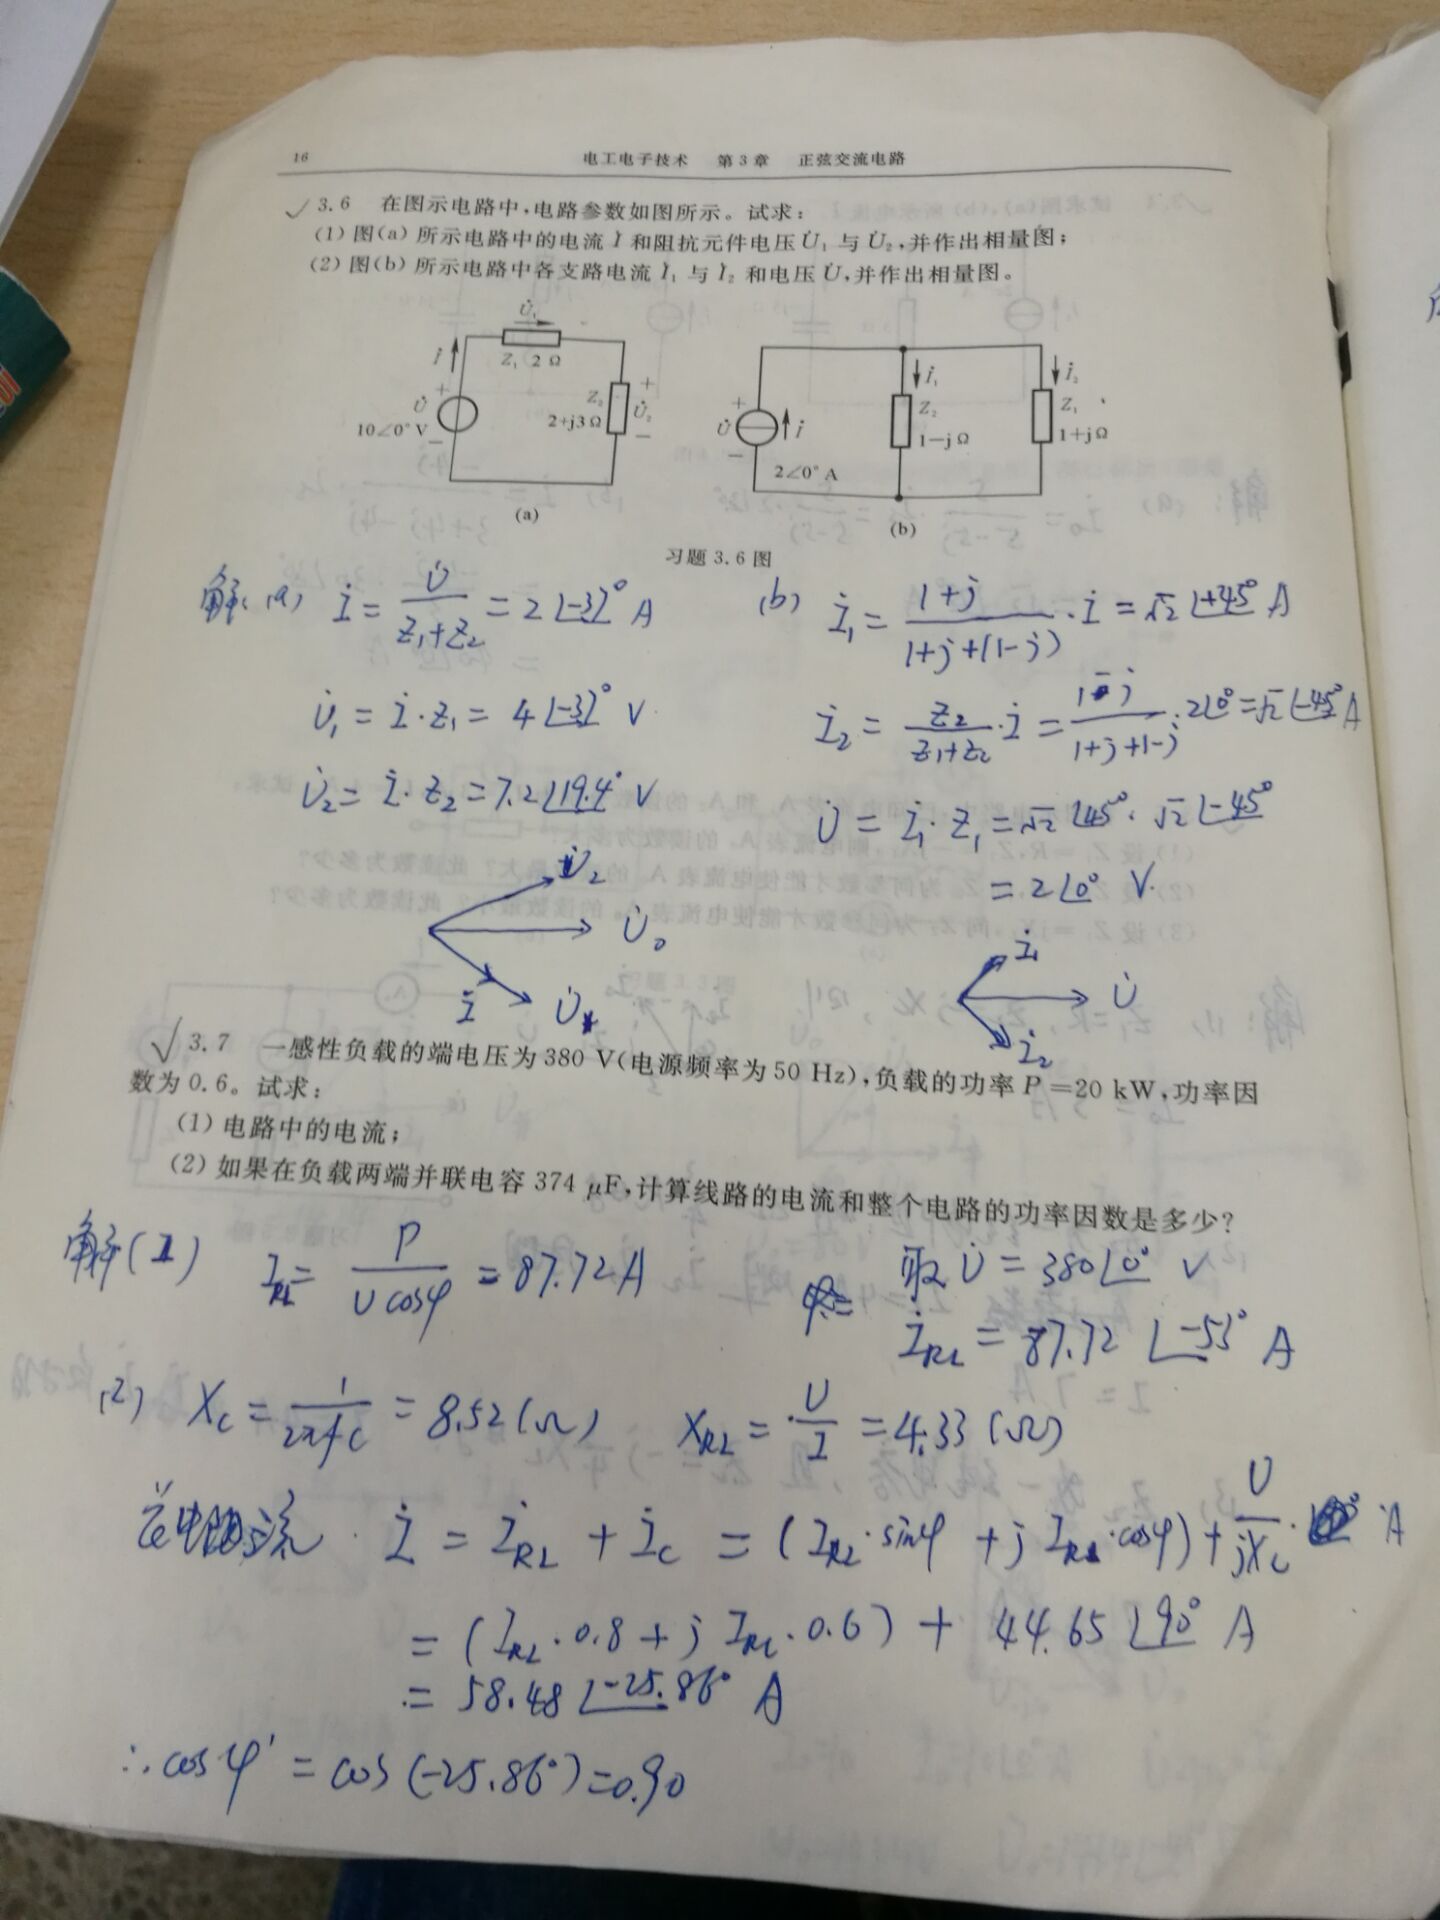 16 电工电子技术 第3章 正弦交流电路
✓ 3.6 在图示电路中,电路参数如图所示。试求:
(1) 图(a)所示电路中的电流 İ 和阻抗元件电压 U̇₁ 与 U̇₂,并作出相量图;
(2) 图(b)所示电路中各支路电流 İ₁ 与 İ₂ 和电压 U̇,并作出相量图。
U̇₁
İ
Z₁ 2 Ω
+ U̇ −
10∠0° V
Z₂
2+j3 Ω
+ U̇₂ −
(a)
+ U̇ −
İ
2∠0° A
İ₁
Z₂
1−j Ω
İ₂
Z₁
1+j Ω
(b)
习题 3.6 图
解: (a) İ = U̇/(Z₁+Z₂) = 2∠-37° A
U̇₁ = İ·Z₁ = 4∠-37° V
U̇₂ = İ·Z₂ = 7.2∠19.4° V
U̇₂
U̇
İ
(b) İ₁ = (1+j)/(1+j+(1-j))·İ = √2∠+45° A
İ₂ = Z₂/(Z₁+Z₂)·İ = (1-j)/(1+j+1-j)·2∠0° = √2∠-45° A
U̇ = İ₁·Z₁ = √2∠45°·√2∠-45°
= 2∠0° V.
İ₁
U̇
İ₂
✓ 3.7 一感性负载的端电压为 380 V(电源频率为 50 Hz),负载的功率 P=20 kW,功率因
数为 0.6。试求:
(1) 电路中的电流;
(2) 如果在负载两端并联电容 374 μF,计算线路的电流和整个电路的功率因数是多少?
解(1) I_RL = P/(U cosφ) = 87.72 A
取 U̇ = 380∠0° V
İ_RL = 87.72∠-53° A
(2) X_C = 1/(2πfC) = 8.52 (Ω) X_RL = U/I = 4.33 (Ω)
İ = İ_RL + İ_C = (I_RL·sinφ + j I_RL·cosφ) + U/(jX_C)· A
= (I_RL·0.8 + j I_RL·0.6) + 44.65∠90° A
= 58.48∠-25.86° A
∴ cosφ' = cos(-25.86°) = 0.90